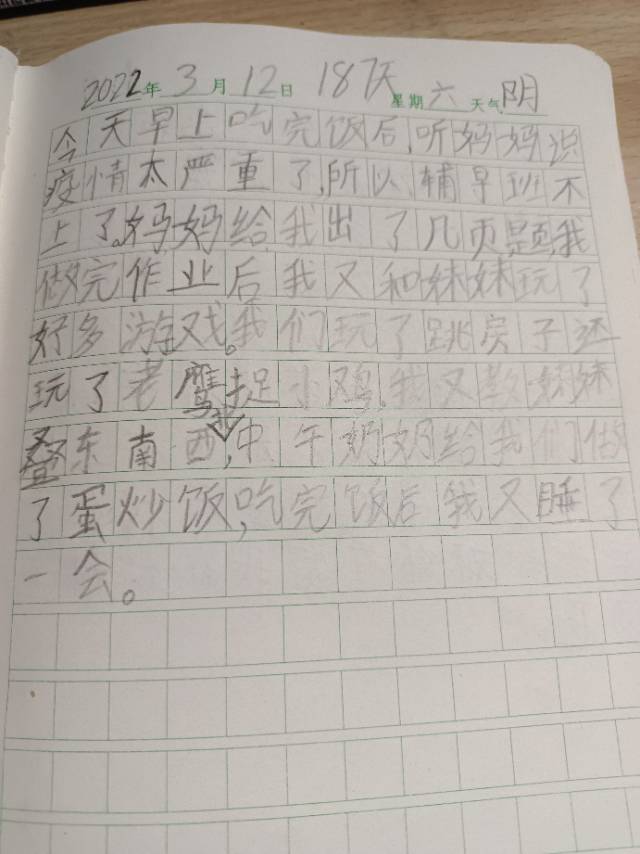 2022年3月12日 187天 星期六 天气阴
今天早上吃完饭后,听妈妈说
疫情太严重了,所以辅早班不
上了。妈妈给我出了几页题,我
做完作业后我又和妹妹玩了
好多游戏。我们玩了跳房子还
玩了老鹰捉小鸡,我又教妹妹
叠东南西北,中午奶奶给我们做
了蛋炒饭,吃完饭后我又睡了
一会。